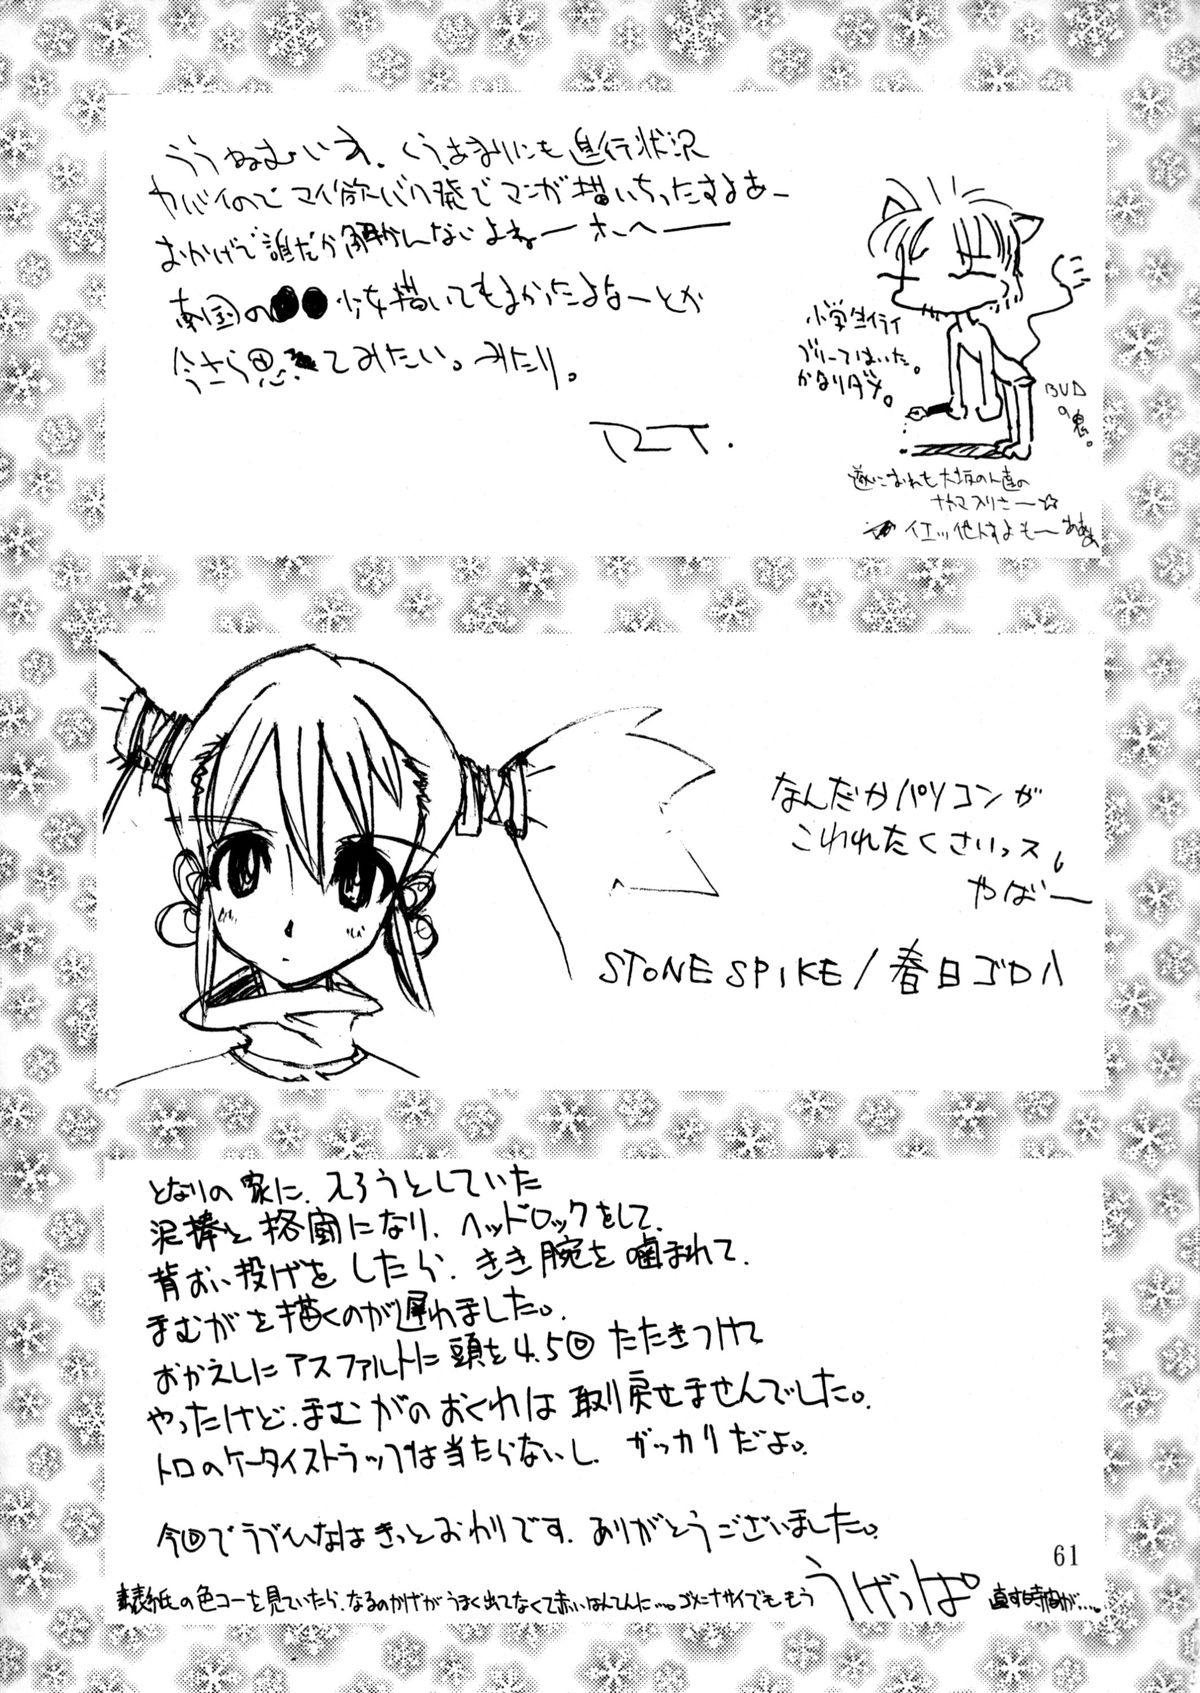 ううねむいす。くう、あまりにも進行状況
ヤバイのでマイ欲バク発でマンガ描いちったすよあー
おかげで誰だか解かんないよねーホへー
南国の●●少女描いてもよかったよなーとか
今さら思ってみたい。みたり。
小学生イライ
ブリーてはいた。
かなりダメ。
BVD
の鬼。
遂におれも大坂の人達の
ナカマ入りさー☆
イエッ他人すよもーああぁ
なんだかパソコンが
こわれたくさいっス。
やばー
STONE SPIKE/春日ゴロ八
となりの家に、入ろうとしていた
泥棒と格闘になり、ヘッドロックをして、
背おい投げをしたら、きき腕を噛まれて、
まむがを描くのが遅れました。
おかえしにアスファルトに頭を4.5回たたきつけて
やったけど、まむがのおくれは取り戻せませんでした。
トロのケータイストラップは当たらないし、ガッカリだよ。
今回でラブひなはきっとおわりです。ありがとうございました。
61
表紙の色コーを見ていたら、なるのかげがうまく出てなくて赤いはんてんに…。ゴメーナサイでももう
うげっぱ
直す時間が…。